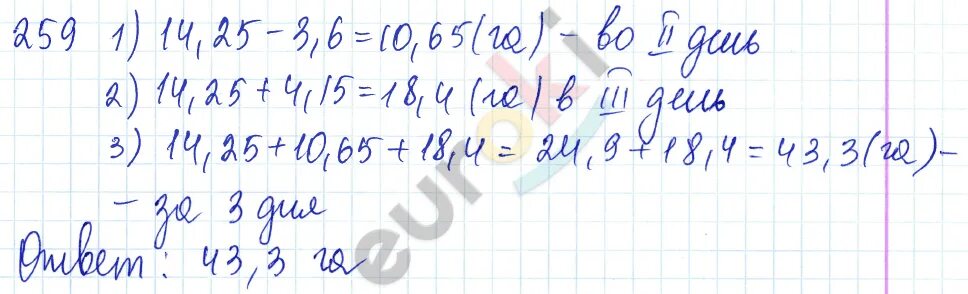 259 1) 14,25 - 3,6 = 10,65 (га) - во II день
2) 14,25 + 4,15 = 18,4 (га) в III день
3) 14,25 + 10,65 + 18,4 = 24,9 + 18,4 = 43,3 (га) -
- за 3 дня
Ответ: 43,3 га
euroki